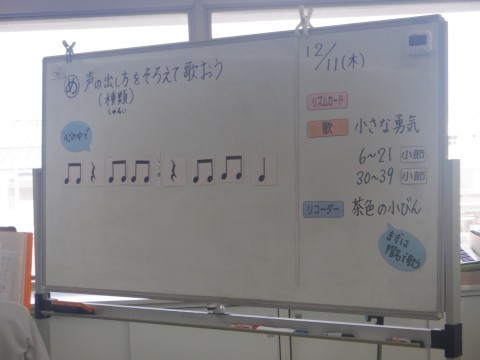 め 声の出し方をそろえて歌おう
(種類)
しゅるい
心の中で
12/11(木)
リズムカード
歌 小さな勇気
6～21 小節
30～39 小節
リコーダー 茶色の小びん
まずは